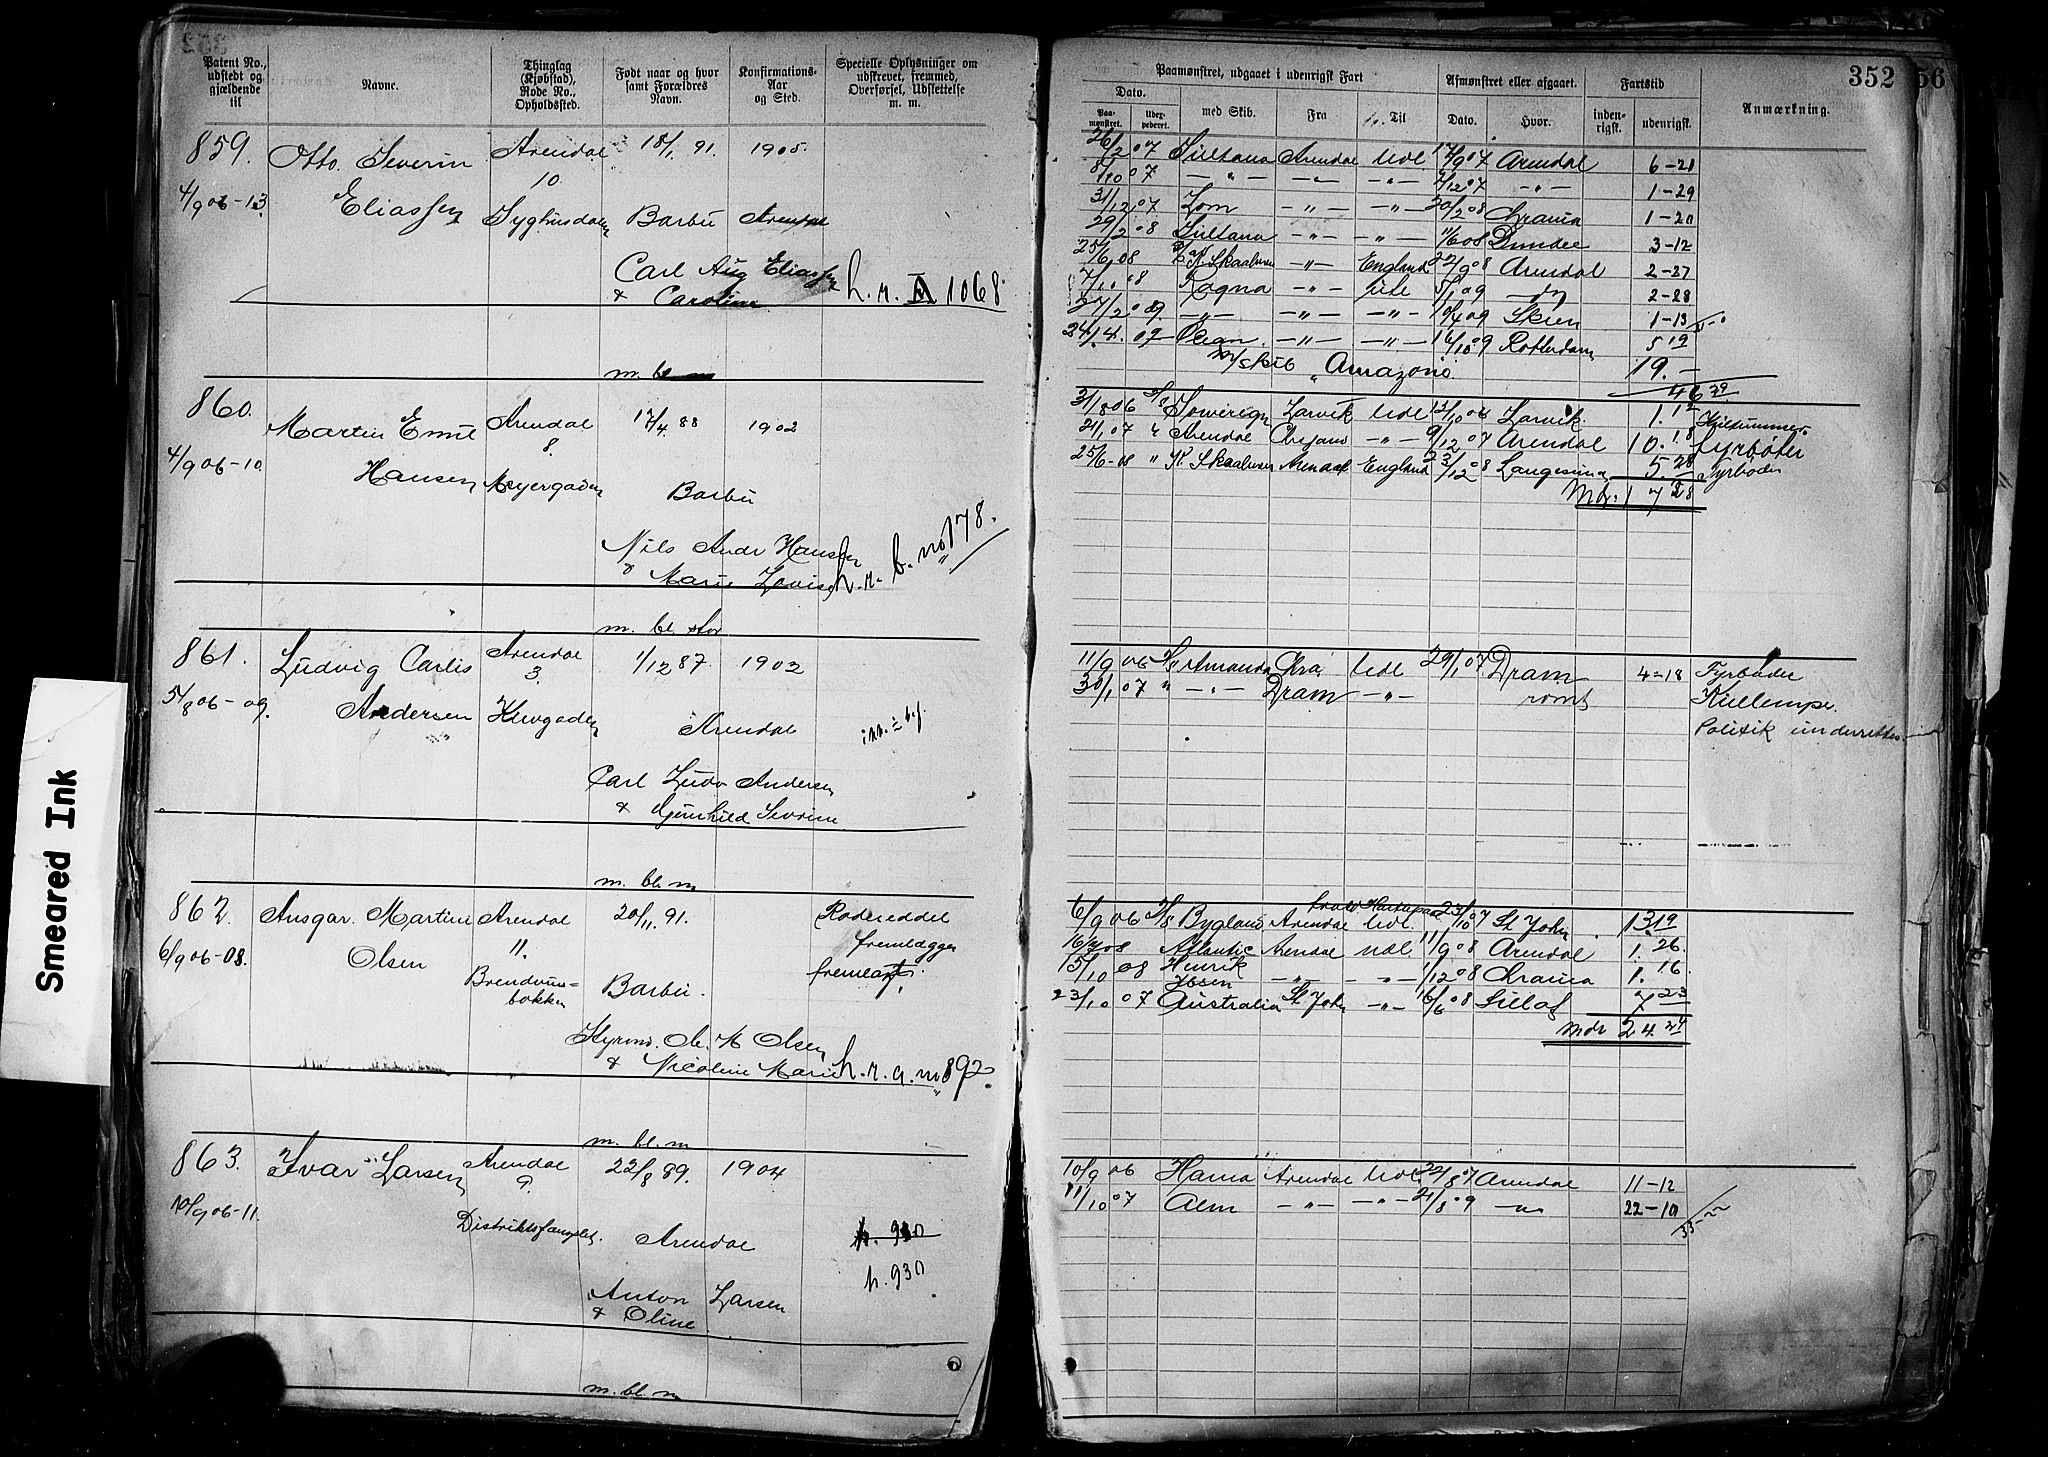 Smeared Ink
Patent No., udstedt og gjældende til
Navne.
Thinglag (Kjøbstad), Rode No., Opholdssted.
Født naar og hvor samt Forældres Navn.
Konfirmations-Aar og Sted.
Specielle Oplysninger om udskrevet, fremmed, Overførsel, Udslettelse m. m.
859. Otto Severin Arendal 18/1 91. 1905.
10.
4/9 06-13. Eliassen Barbu Arendal
Carl Aug Eliassen
& Caroline h. r. 1068.
m. bl. m
860. Martin Emil Arendal 17/4. 88 1902
8.
4/9 06-10. Hansen Barbu
Nils Andr Hansen
& Marie Lovise h. r. b. no 178.
m. bl. stor
861. Ludvig Carlis Arendal 1/12 87. 1902
3.
5/8 06-09. Andersen Arendal
Carl Ludv Andersen
& Gunhild Severine
m. bl. m
862. Ansgar Martin Arendal 20/11. 91. Rodeseddel
11. fremlægges
6/9 06-08. Olsen Barbu. fremlagt.
Styrmd. Ole M Olsen
& Nicoline Marie h. r. a. no 892.
m. bl. m
863. Ivar Larsen Arendal 22/8 89. 1904
9.
10/9 06-11. Distriktsfængslet. Arendal h. 930
h. 930
Anton Larsen
& Oline
m. bl. m
352
56
Paamønstret, udgaaet i udenrigst Fart
Afmønstret eller afgaaet.
Fartstid
Anmærkning.
Dato.
Paa-mønstret.
med Skib.
Fra
Til
Dato.
Hvor.
inden-rigst.
udenrigst.
26/2 07 Sultana Arendal Udl 17/9 07 Arendal 6-21
8/10 07 — " — — " — — " — 7/12 07 — " — 1-29
31/12 07 Lom — " — — " — 20/2 08 Chrania 1-20
29/2 08 Sultana — " — — " — 11/6 08 Dundee 3-12
25/6 08 K. Skaaluren — " — England 22/9 08 Arendal 2-27
7/10 08 Ragna — " — 5/1 09 2-28
27/2 09. — " — — " — — " — 10/4 09 Skien 1-13
24/4. 09 Ocean. — " — — " — 16/10 09 Rotterdam 5 19
m/skib "Amazone. 19. —
46 29
31/8 06 S/S Sovereign Larvik Udl 13/10 06 Larvik. 1. 12
21/1 07 " Arendal — " — 9/12 07 Arendal 10. 18 Fyrbøder
25/6-08 " K. Skaaluren Arendal England 23/12 08 Langesund 5. 28 Fyrbøder
Mdr. 17 28
11/9 06 S/S Amanda Chra. Udl 29/1 07 Dram 4-18 Fyrbøder
30/1 07 " — " — Dram — " — rømt Kullemper.
Politik underrettes
6/9 06 S/S Bygland Arendal Udl. 23/10 07 St John 13 19
16/7 08 Atlantic Arendal Udl 11/9 08 Arendal 1. 26.
15/10 08 Henrik Ibsen — " — — " — 1/12 08 Chrania 1. 16
23/10 07 Australia St John — " — 16/6 08 7 23
Mdr 24. 24
10/9 06 Hama Arendal Udl. 22/8 07 Arendal 11-12
11/10 07 Alm — " — — " — 21/8 09 — " 22-10
33-22